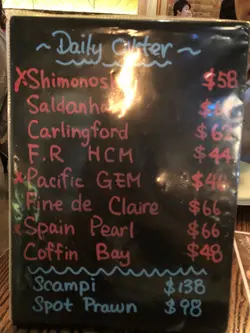 ~ Daily Oyster ~
x Shimonos $58
Saldanha
Carlingford
F.R HCM $44
x Pacific GEM
Fine de Claire $66
x Spain Pearl $66
Coffin Bay $48
Scampi $138
Spot Prawn $98